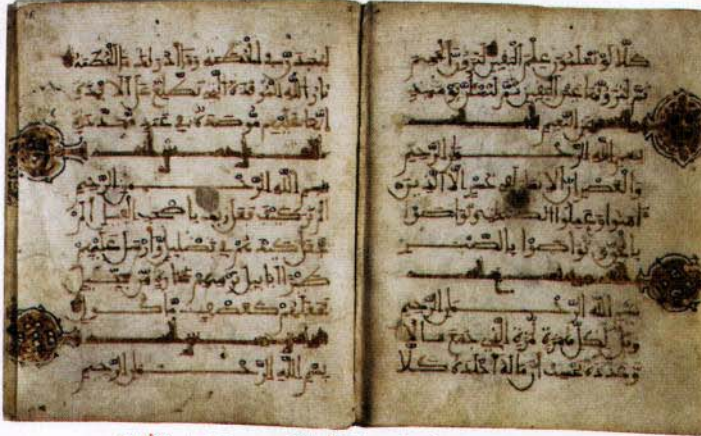 كلا لو تعلمون علم اليقين لترون الجحيم
ثم لترونها عين اليقين ثم لتسئلن يومئذ
عن النعيم
بسم الله الرحمن الرحيم
والعصر ان الانسن لفي خسر الا الذين
امنوا وعملوا الصلحت وتواصوا
بالحق وتواصوا بالصبر
بسم الله الرحمن الرحيم
ويل لكل همزة لمزة الذي جمع مالا
وعدده يحسب ان ماله اخلده كلا
لينبذن في الحطمة وما ادريك ما الحطمة
نار الله الموقدة التي تطلع على الافئدة
انها عليهم موصدة في عمد ممددة
بسم الله الرحمن الرحيم
الم تر كيف فعل ربك باصحب الفيل الم
يجعل كيدهم في تضليل وارسل عليهم
طيرا ابابيل ترميهم بحجارة من سجيل
فجعلهم كعصف ماكول
بسم الله الرحمن الرحيم